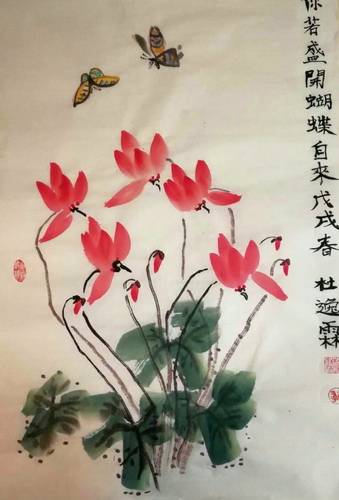 你若盛開蝴蝶自來戊戌春
杜逸霖